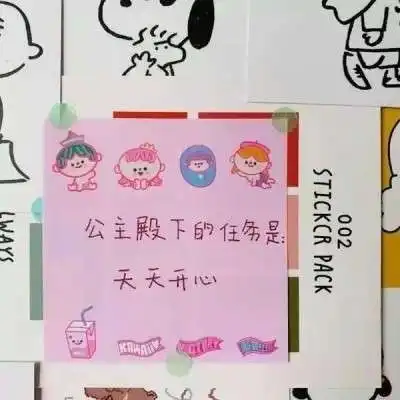 公主殿下的任务是:
天天开心
KAWAII
002
STICKCR PACK
LWAYS